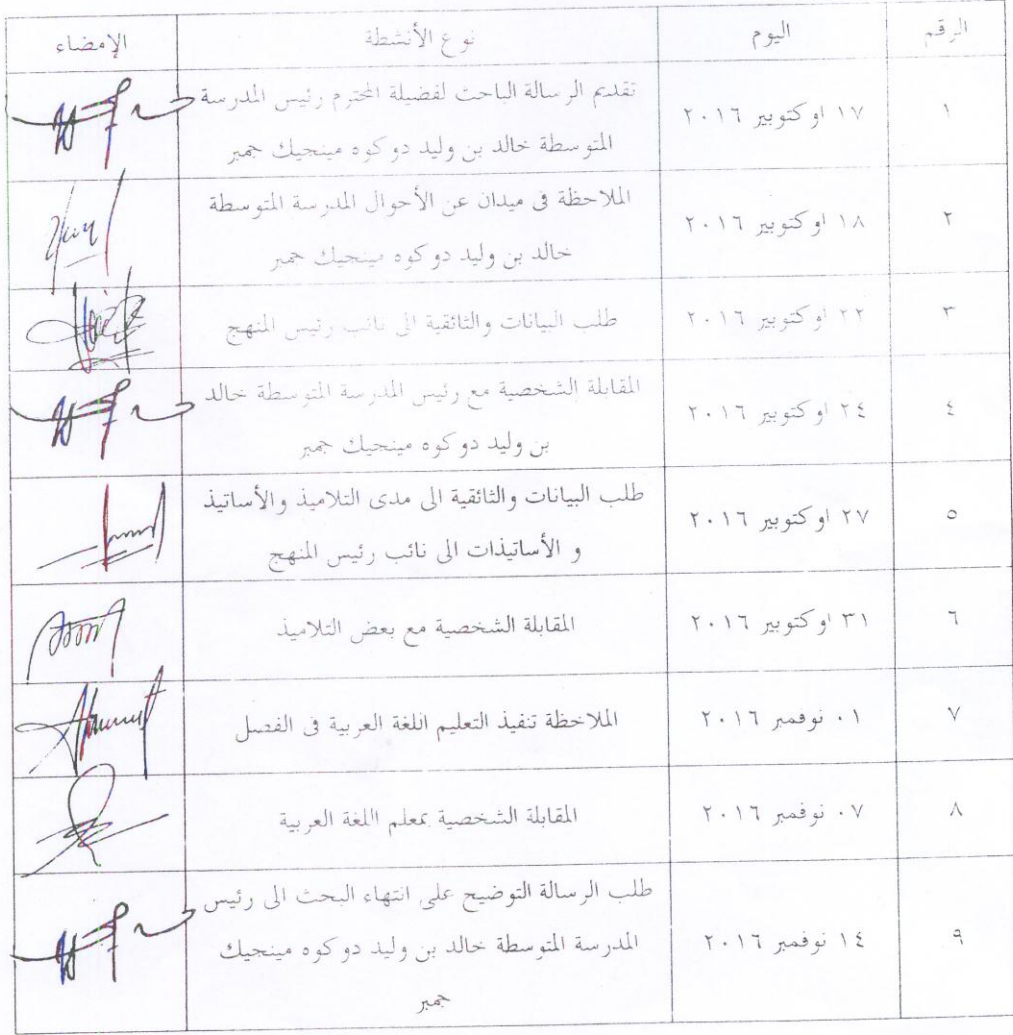 الرقم اليوم نوع الأنشطة الإمضاء
١ ١٧ اوكتوبير ٢٠١٦ تقديم الرسالة الباحث لفضيلة المحترم رئيس المدرسة
المتوسطة خالد بن وليد دوكوه مينجيك جمبر
٢ ١٨ اوكتوبير ٢٠١٦ الملاحظة فى ميدان عن الأحوال المدرسة المتوسطة
خالد بن وليد دوكوه مينجيك جمبر
٣ ٢٢ اوكتوبير ٢٠١٦ طلب البيانات والثائقية الى نائب رئيس المنهج
٤ ٢٤ اوكتوبير ٢٠١٦ المقابلة الشخصية مع رئيس المدرسة المتوسطة خالد
بن وليد دوكوه مينجيك جمبر
٥ ٢٧ اوكتوبير ٢٠١٦ طلب البيانات والثائقية الى مدى التلاميذ والأساتيذ
و الأساتيذات الى نائب رئيس المنهج
٦ ٣١ اوكتوبير ٢٠١٦ المقابلة الشخصية مع بعض التلاميذ
٧ ٠١ نوفمبر ٢٠١٦ الملاحظة تنفيذ التعليم اللغة العربية فى الفصل
٨ ٠٧ نوفمبر ٢٠١٦ المقابلة الشخصية بمعلم اللغة العربية
٩ ١٤ نوفمبر ٢٠١٦ طلب الرسالة التوضيح على انتهاء البحث الى رئيس
المدرسة المتوسطة خالد بن وليد دوكوه مينجيك
جمبر